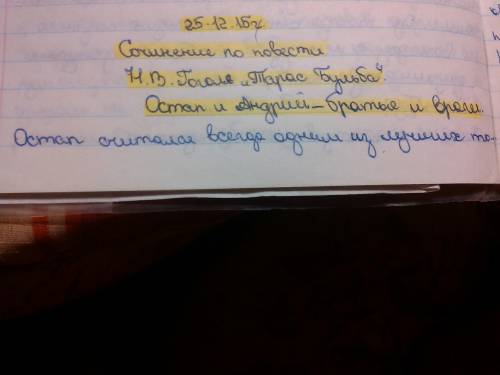 25.12.15г.
Сочинение по повести
Н.В. Гоголя „Тарас Бульба".
Остап и Андрий – братья и враги.
Остап считался всегда одним из лучших то-